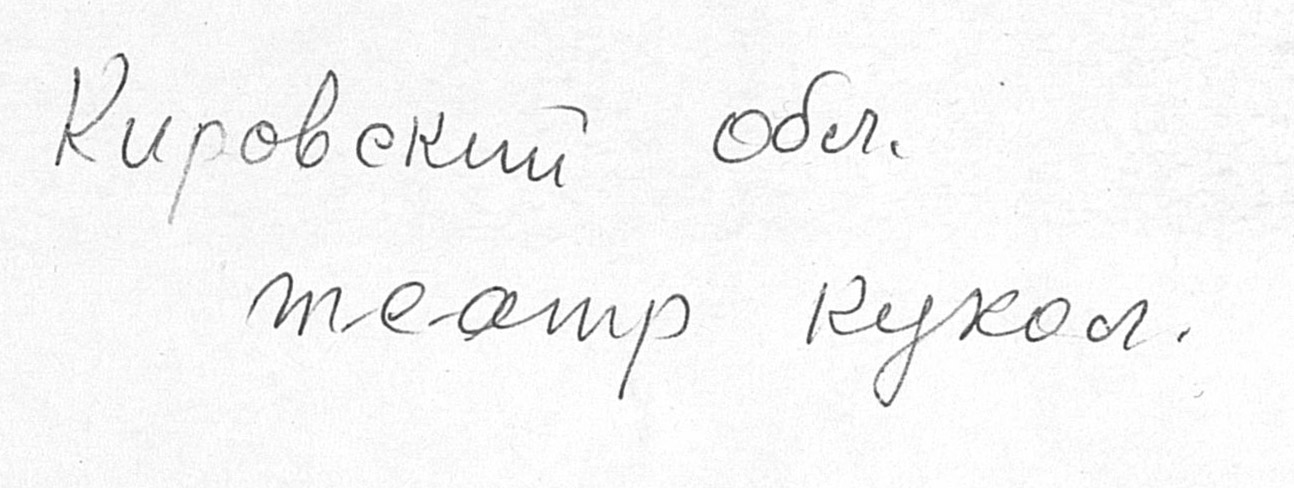 Кировский обл.
театр кукол.